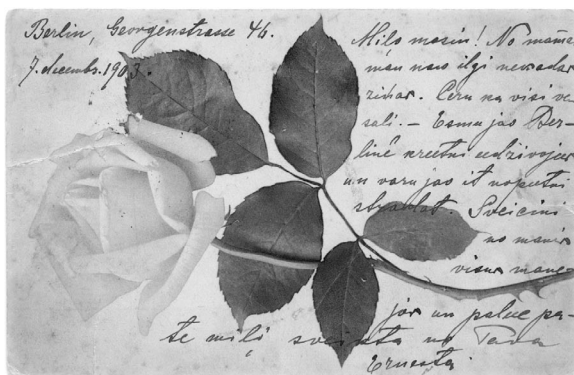 Berlin, Georgenstrasse 46.
7. decembr. 1903.
Milo masin! No manis
man nav ilgi
Ceru ka visi ve-
seli. – Esmu jau Ber-
līnē krietni iedzīvojies
un varu jau it nopietni
strādāt. Sveicini
no manis
visus
jūs un paliec pa-
te mīļi sveikta no Tava
Ernesta.